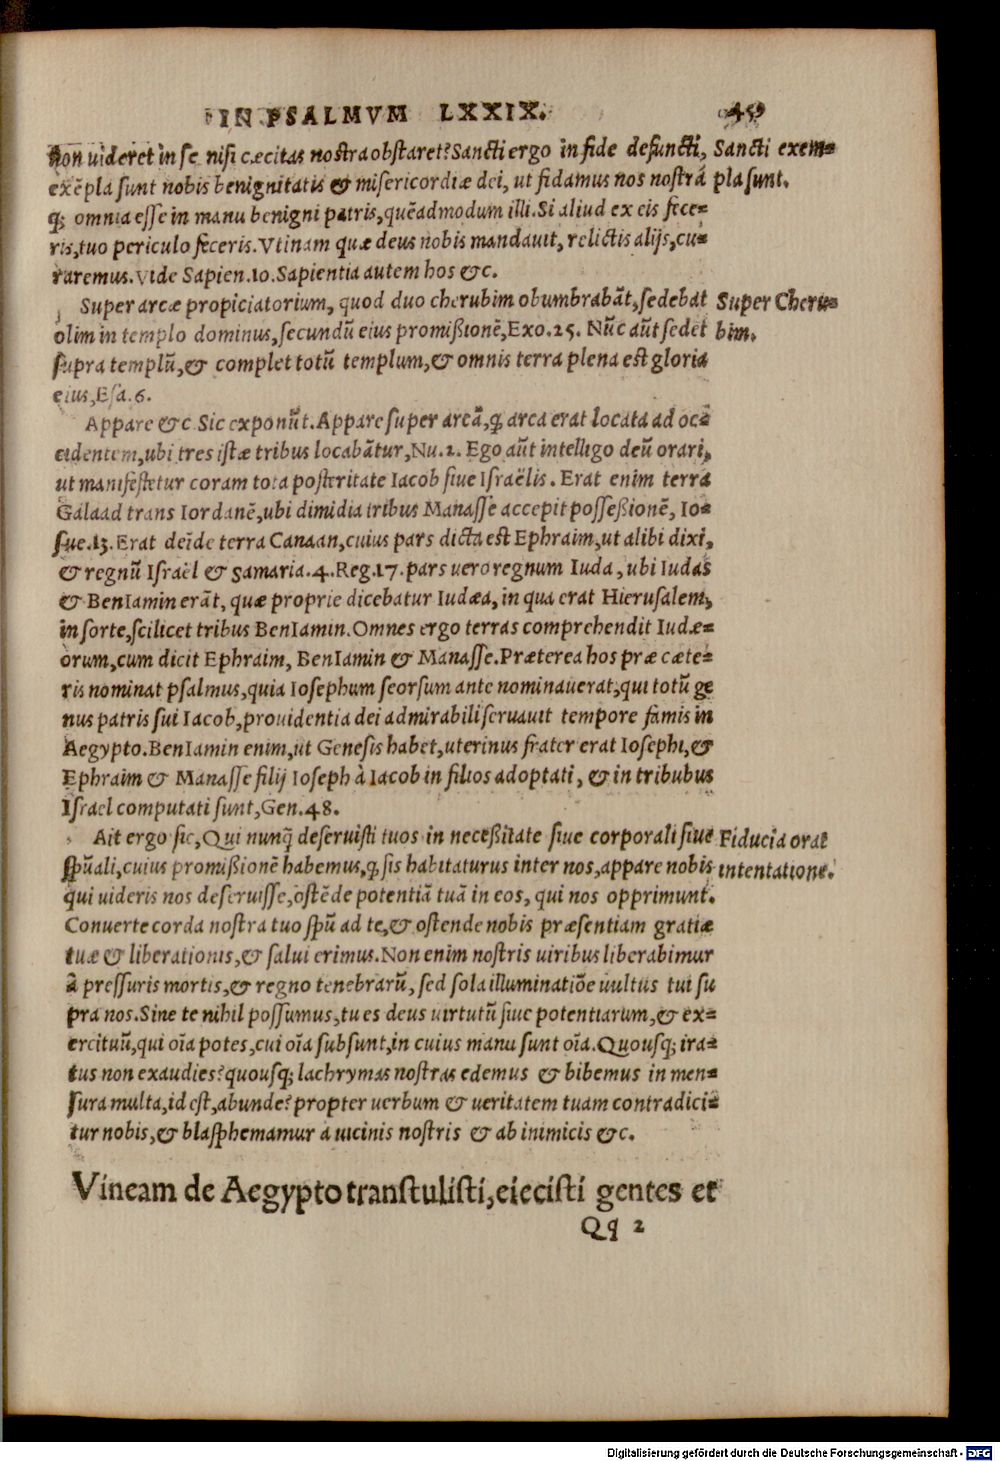 IN PSALMVM LXXIX. 459
non uideret in se nisi cæcitas nostra obstaret? Sancti ergo in fide defuncti, Sancti exem=
exẽpla sunt nobis benignitatis & misericordiæ dei, ut fidamus nos nostrá pla sunt.
q; omnia esse in manu benigni patris, quẽadmodum illi. Si aliud ex eis fece=
ris, tuo periculo feceris. Vtinam quæ deus nobis mandauit, relictis alijs, cu=
raremus. Vide Sapien. 10. Sapientia autem hos &c.
Super arcæ propiciatorium, quod duo cherubim obumbrabãt, sedebat Super Cheru=
olim in templo dominus, secundũ eius promißionẽ, Exo. 25. Nũc aũt sedet bim.
supra templũ, & complet totũ templum, & omnis terra plena est gloria
eius, Esa. 6.
Appare &c Sic exponũt. Appare super arcã, q̃ arca erat locata ad occ̃=
cidentem, ubi tres istæ tribus locabãtur, Nu. 2. Ego aũt intelligo deũ orari,
ut manifestetur coram tota posteritate Iacob siue Israëlis. Erat enim terra
Galaad trans Iordanẽ, ubi dimidia tribus Manasse accepit possessionẽ, Io=
sue. 13. Erat deĩde terra Canaan, cuius pars dicta est Ephraim, ut alibi dixi,
& regnũ Israël & Samaria. 4. Reg. 17. pars uero regnum Iuda, ubi Iudas
& BenIamin erãt, quæ proprie dicebatur Iudæa, in qua erat Hierusalem,
in sorte, scilicet tribus BenIamin. Omnes ergo terras comprehendit Iudæ=
orum, cum dicit Ephraim, BenIamin & Manasse. Præterea hos præ cæte=
ris nominat psalmus, quia Iosephum seorsum ante nominauerat, qui totũ ge
nus patris sui Iacob, prouidentia dei admirabili seruauit tempore famis in
Aegypto. BenIamin enim, ut Genesis habet, uterinus frater erat Iosephi, &
Ephraim & Manasse filij Ioseph à Iacob in filios adoptati, & in tribubus
Israel computati sunt, Gen. 48.
Ait ergo sic, Qui nunq̃ deseruisti tuos in neceßitate siue corporali siue Fiducia orat
spũali, cuius promißionẽ habemus, q̃ sis habitaturus inter nos, appare nobis in tentatione.
qui uideris nos deseruisse, ostẽde potentiã tuã in eos, qui nos opprimunt.
Conuerte corda nostra tuo spũ ad te, & ostende nobis præsentiam gratiæ
tuæ & liberationis, & salui erimus. Non enim nostris uiribus liberabimur
à pressuris mortis, & regno tenebrarũ, sed sola illuminatiõe uultus tui su
pra nos. Sine te nihil possumus, tu es deus uirtutũ siue potentiarum, & ex=
ercituũ, qui oĩa potes, cui oĩa subsunt, in cuius manu sunt oĩa. Quousq; ira=
tus non exaudies? quousq; lachrymas nostras edemus & bibemus in men=
sura multa, id est, abunde? propter uerbum & ueritatem tuam contradici=
tur nobis, & blasphemamur à uicinis nostris & ab inimicis &c.
Vineam de Aegypto transtulisti, eiecisti gentes et
Qq 2
Digitalisierung gefördert durch die Deutsche Forschungsgemeinschaft - DFG